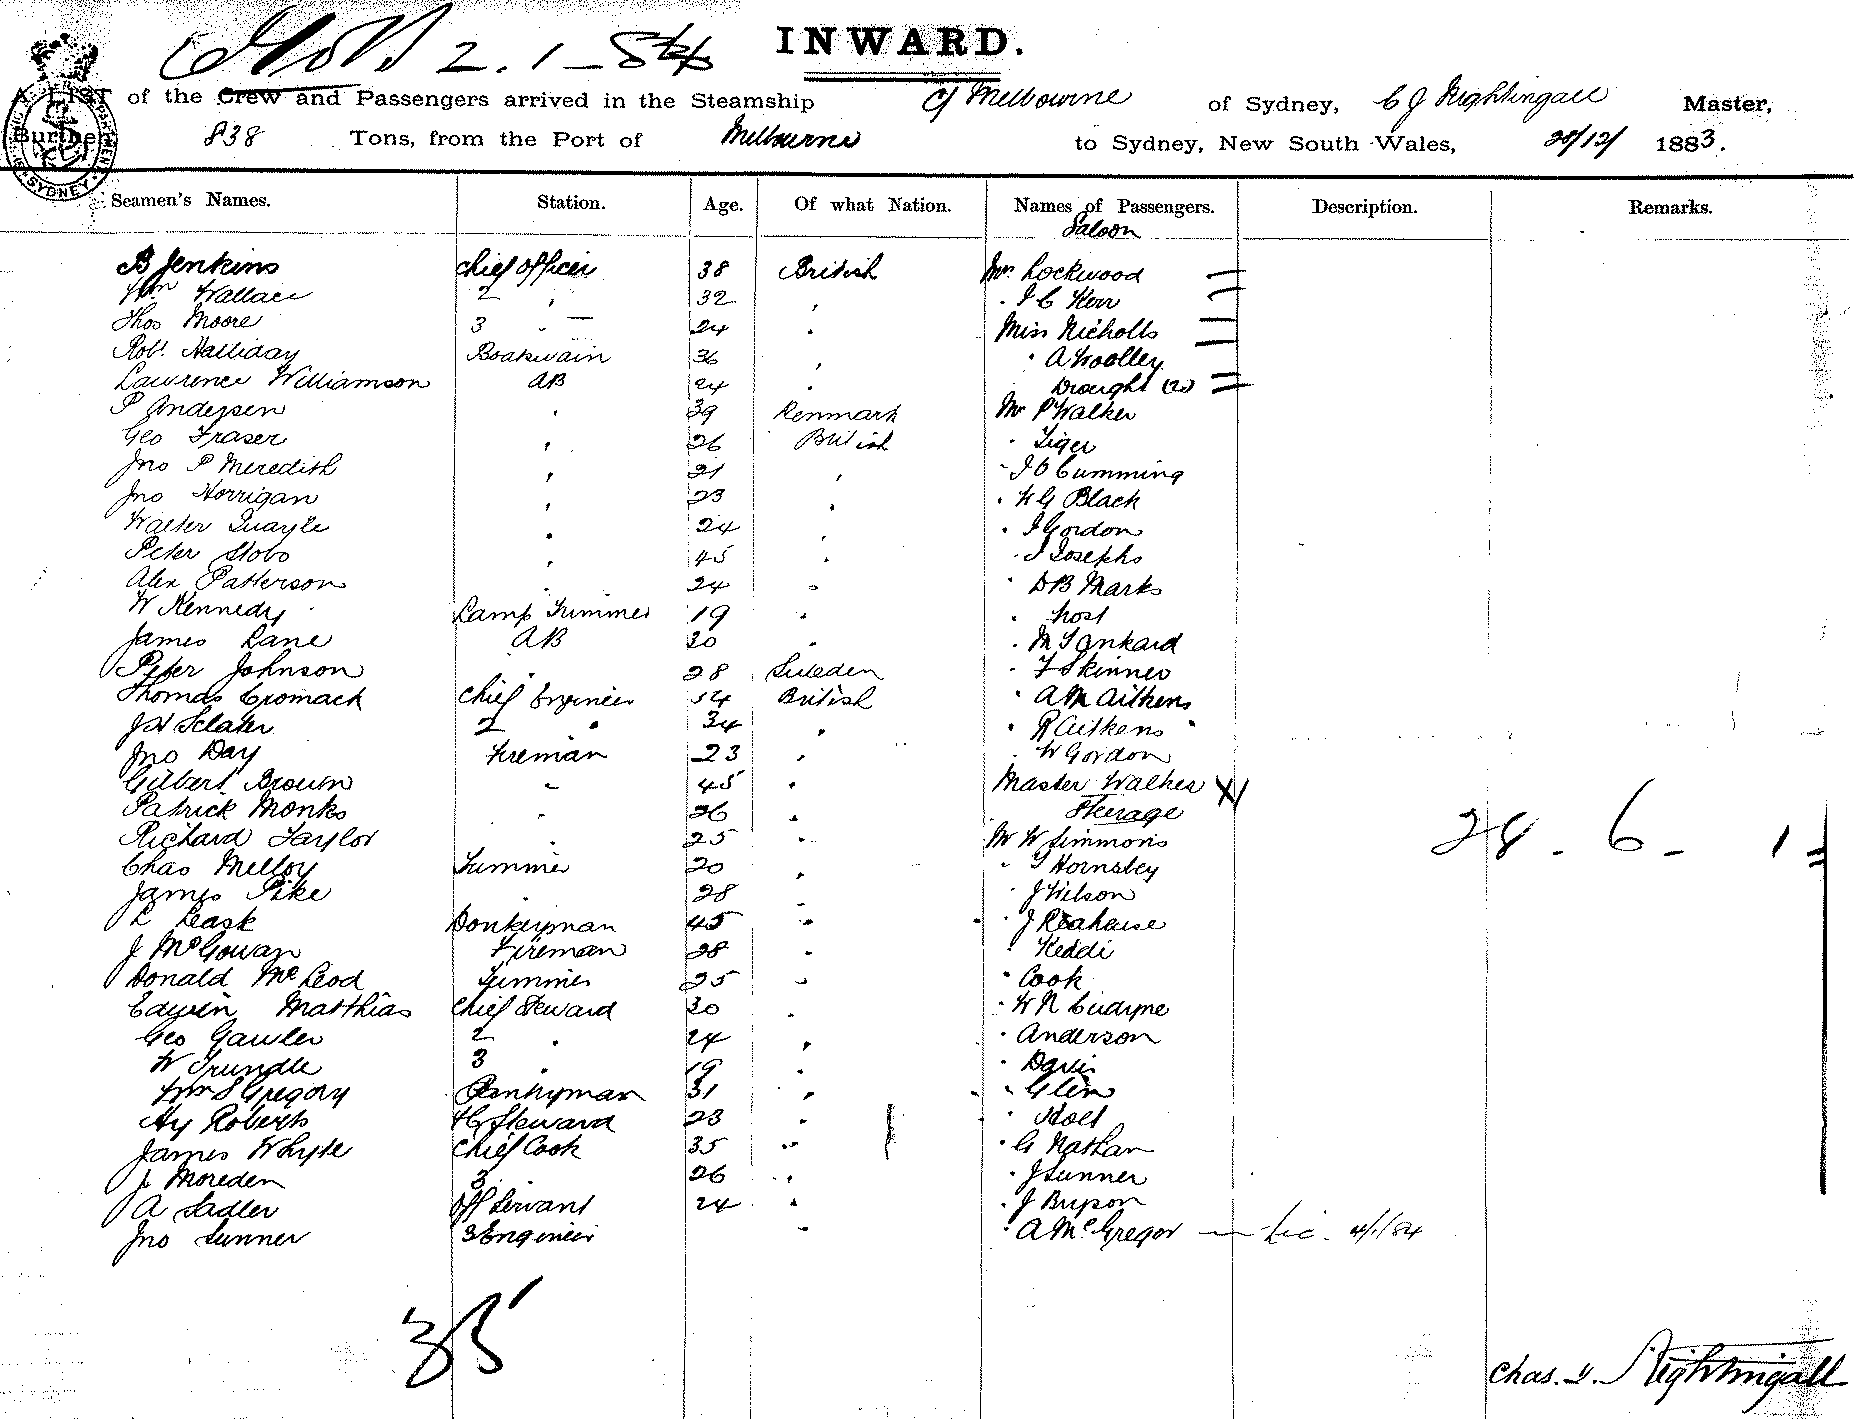 2.1-84 INWARD.
A LIST of the Crew and Passengers arrived in the Steamship Cy Melbourne of Sydney, C J Nightingall Master,
Burthen 838 Tons, from the Port of Melbourne to Sydney, New South Wales, 28/12/ 1883.
Seamen's Names. Station. Age. Of what Nation. Names of Passengers. Description. Remarks.
Saloon
B Jenkins Chief Officer 38 British Mr Lockwood
Wm Wallace 2 " 32 " " J C Kerr
Thos Moore 3 " — 24 " Miss Nicholls
Robt Halliday Boatswain 36 " " A Woolley
Lawrence Williamson AB 24 " Drought (2)
P Andersen " 39 Denmark Mr P Walker
Geo Fraser " 26 British " Tiger
Jno P Meredith " 21 " " J O Cumming
Jno Horrigan " 23 " " H G Black
Walter Quayle " 24 " " J Gordon
Peter Stobo " 45 " " J Josephs
Alex Patterson " 24 " " D B Marks
W Kennedy Lamp Trimmer 19 " " Lost
James Lane AB 30 " " M Tankard
Peter Johnson " 28 Sweden " F Skinner
Thomas Cromack Chief Engineer 54 British " A M Aitkens
J H Sclater 2 " 34 " " R Aitkens "
Jno Day Fireman 23 " " W Gordon
Gilbert Brown " 45 " Master Walker
Patrick Monks " 26 " Steerage
Richard Taylor " 25 " Mr W Simmons 28 - 6 - 1
Chas Melloy Trimmer 20 " " T Hornsley
James Pike 28 " " J Wilson
L Leask Donkeyman 45 " " J
J McGowan Fireman 28 " " Keddi
Donald McLeod Trimmer 25 " " Cook
Edwin Matthias Chief Steward 30 " " W R
Geo Gawler 2 " 24 " " Anderson
W Trundle 3 19 " " Davis
Wm S Gregory Pantryman 31 " " Glen
Hy Roberts F C Steward 23 " " Holt
James Whyte Chief Cook 35 " " G Nathan
J Moreden 3 26 " " J Sunner
A Sadler Off Servant 24 " " J Bryson
Jno Sunner 3 Engineer " " A McGregor — Lic. 4/1/84
35
Chas. J. Nightingall